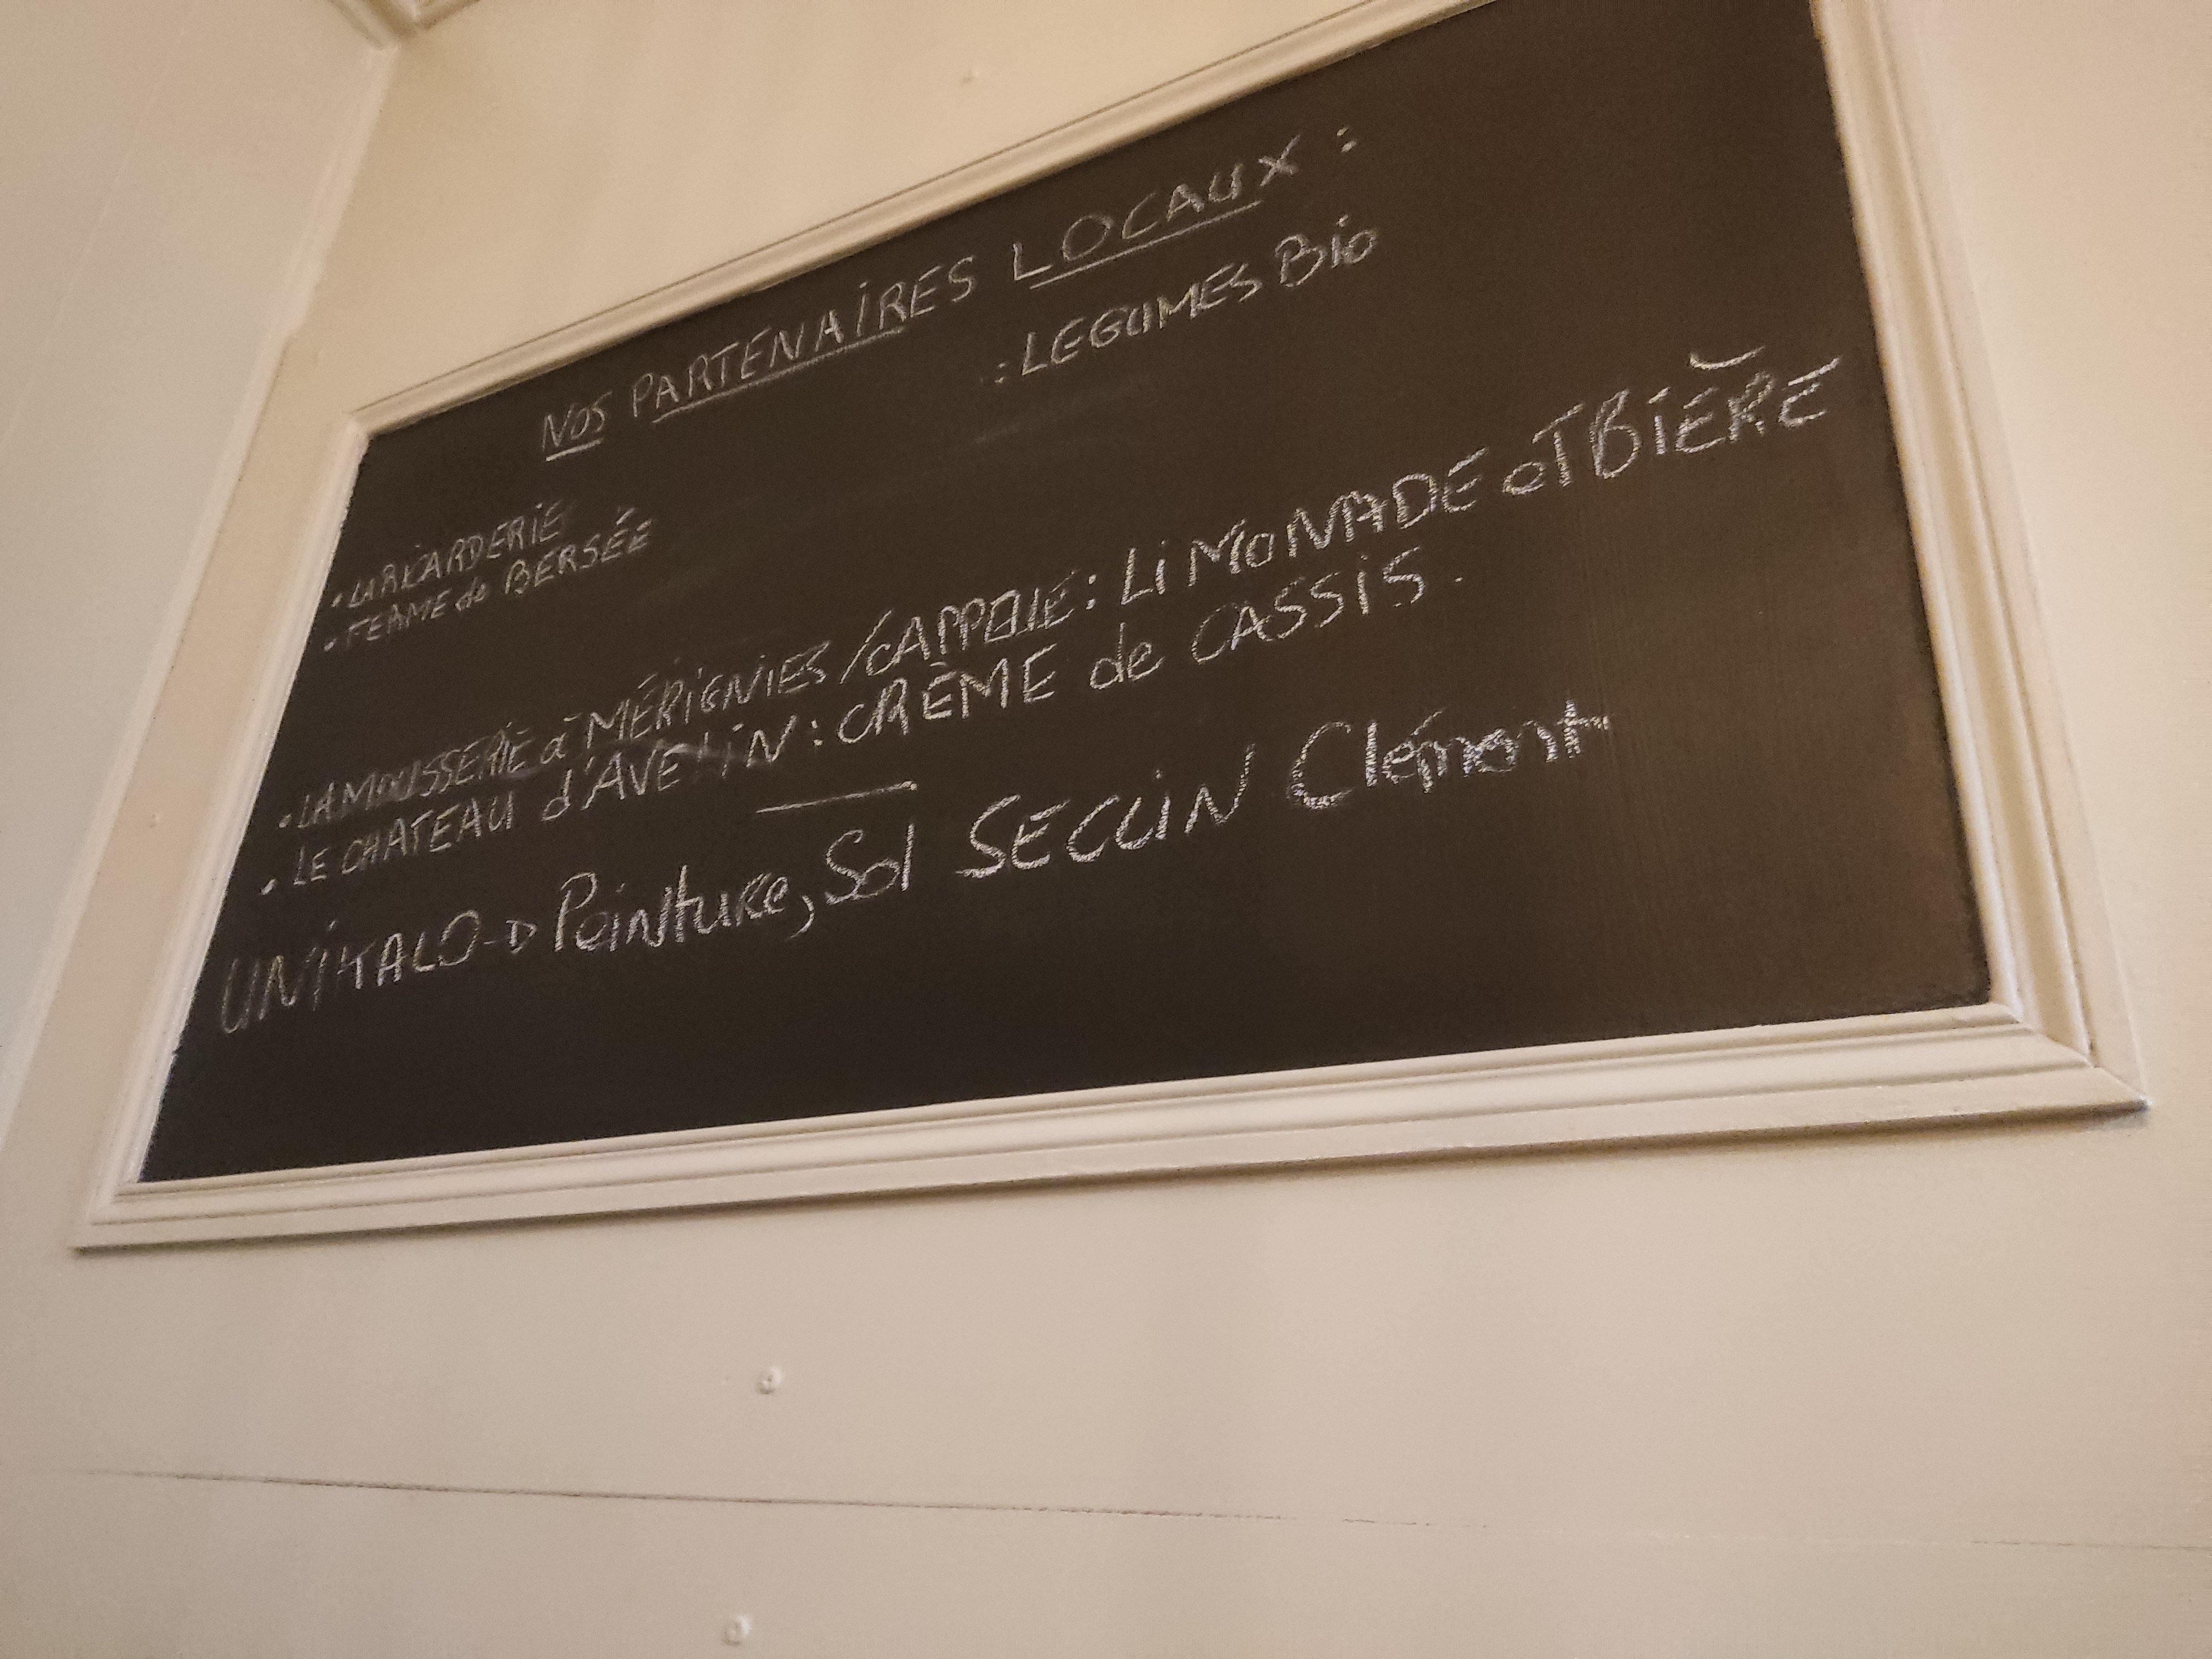 NOS PARTENAIRES LOCAUX :
: LEGUMES Bio
• LA RICARDERIE
• FERME de BERSÉE
• LA MOUSSERIE à MÉRIGNIES / CAPPELLE : LIMONADE eT BIÈRE
• LE CHATEAU d'AVELIN : CRÈME de CASSIS.
UNIKALO-> Peinture, Sol SECLIN Clément